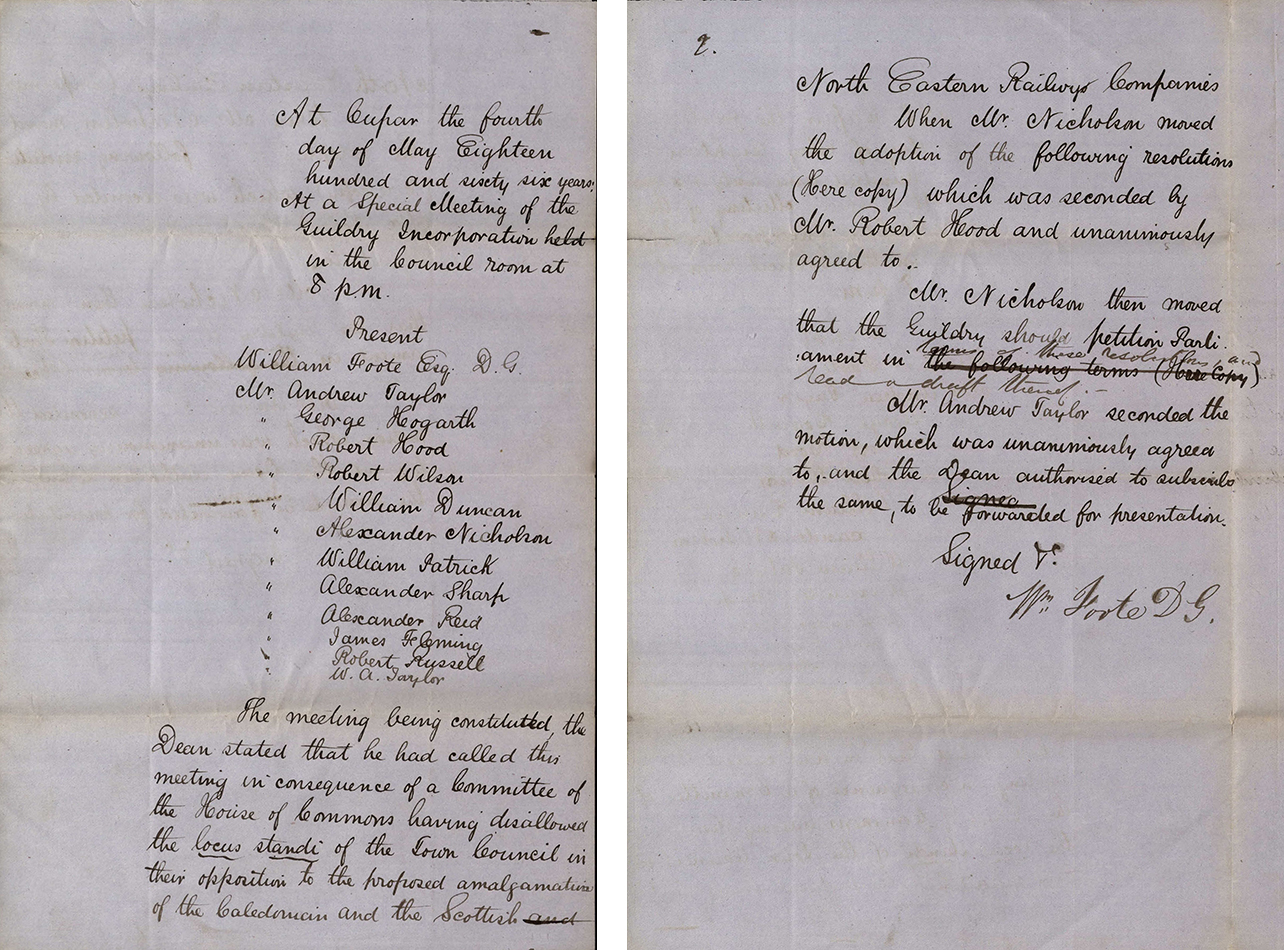 At Cupar the fourth
day of May Eighteen
hundred and sixty six years.
At a Special Meeting of the
Guildry Incorporation held
in the Council room at
8 p.m.
Present
William Foote Esq. D.G.
Mr. Andrew Taylor
" George Hogarth
" Robert Hood
" Robert Wilson
" William Duncan
" Alexander Nicholson
" William Patrick
" Alexander Sharp
" Alexander Reid
" James Fleming
" Robert Russell
" W. A. Taylor
The meeting being constituted, the
Dean stated that he had called this
meeting in consequence of a Committee of
the House of Commons having disallowed
the locus standi of the Town Council in
their opposition to the proposed amalgamation
of the Caledonian and the Scottish and
2.
North Eastern Railways Companies
When Mr. Nicholson moved
the adoption of the following resolutions
(Here copy) which was seconded by
Mr. Robert Hood and unanimously
agreed to.
Mr. Nicholson then moved
that the Guildry should petition Parli-
terms of these resolutions, and
ament in the following terms (Here Copy)
read a draft thereof.
Mr. Andrew Taylor seconded the
motion, which was unanimously agreed
to, and the Dean authorised to subscribe
Signed
the same, to be forwarded for presentation.
Signed
Wm Foote D G.